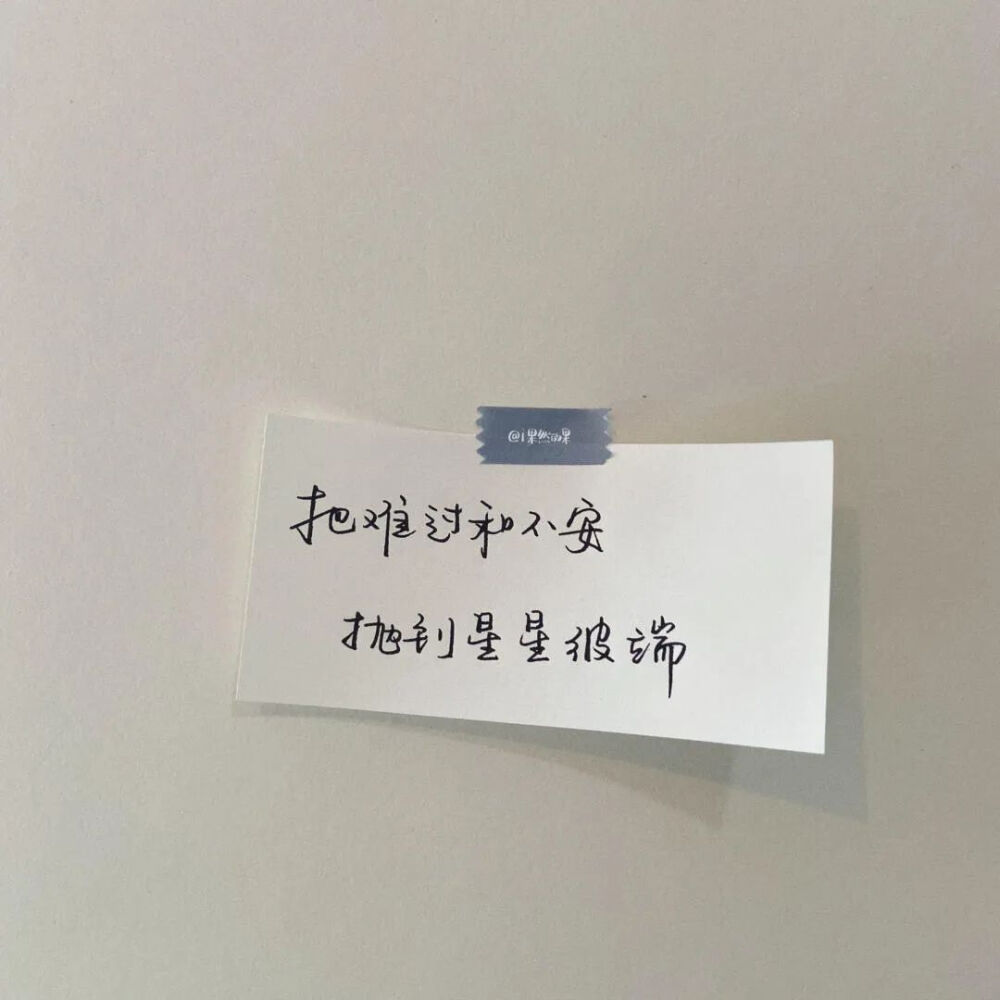 @i果然的果
把难过和不安
抛到星星彼端